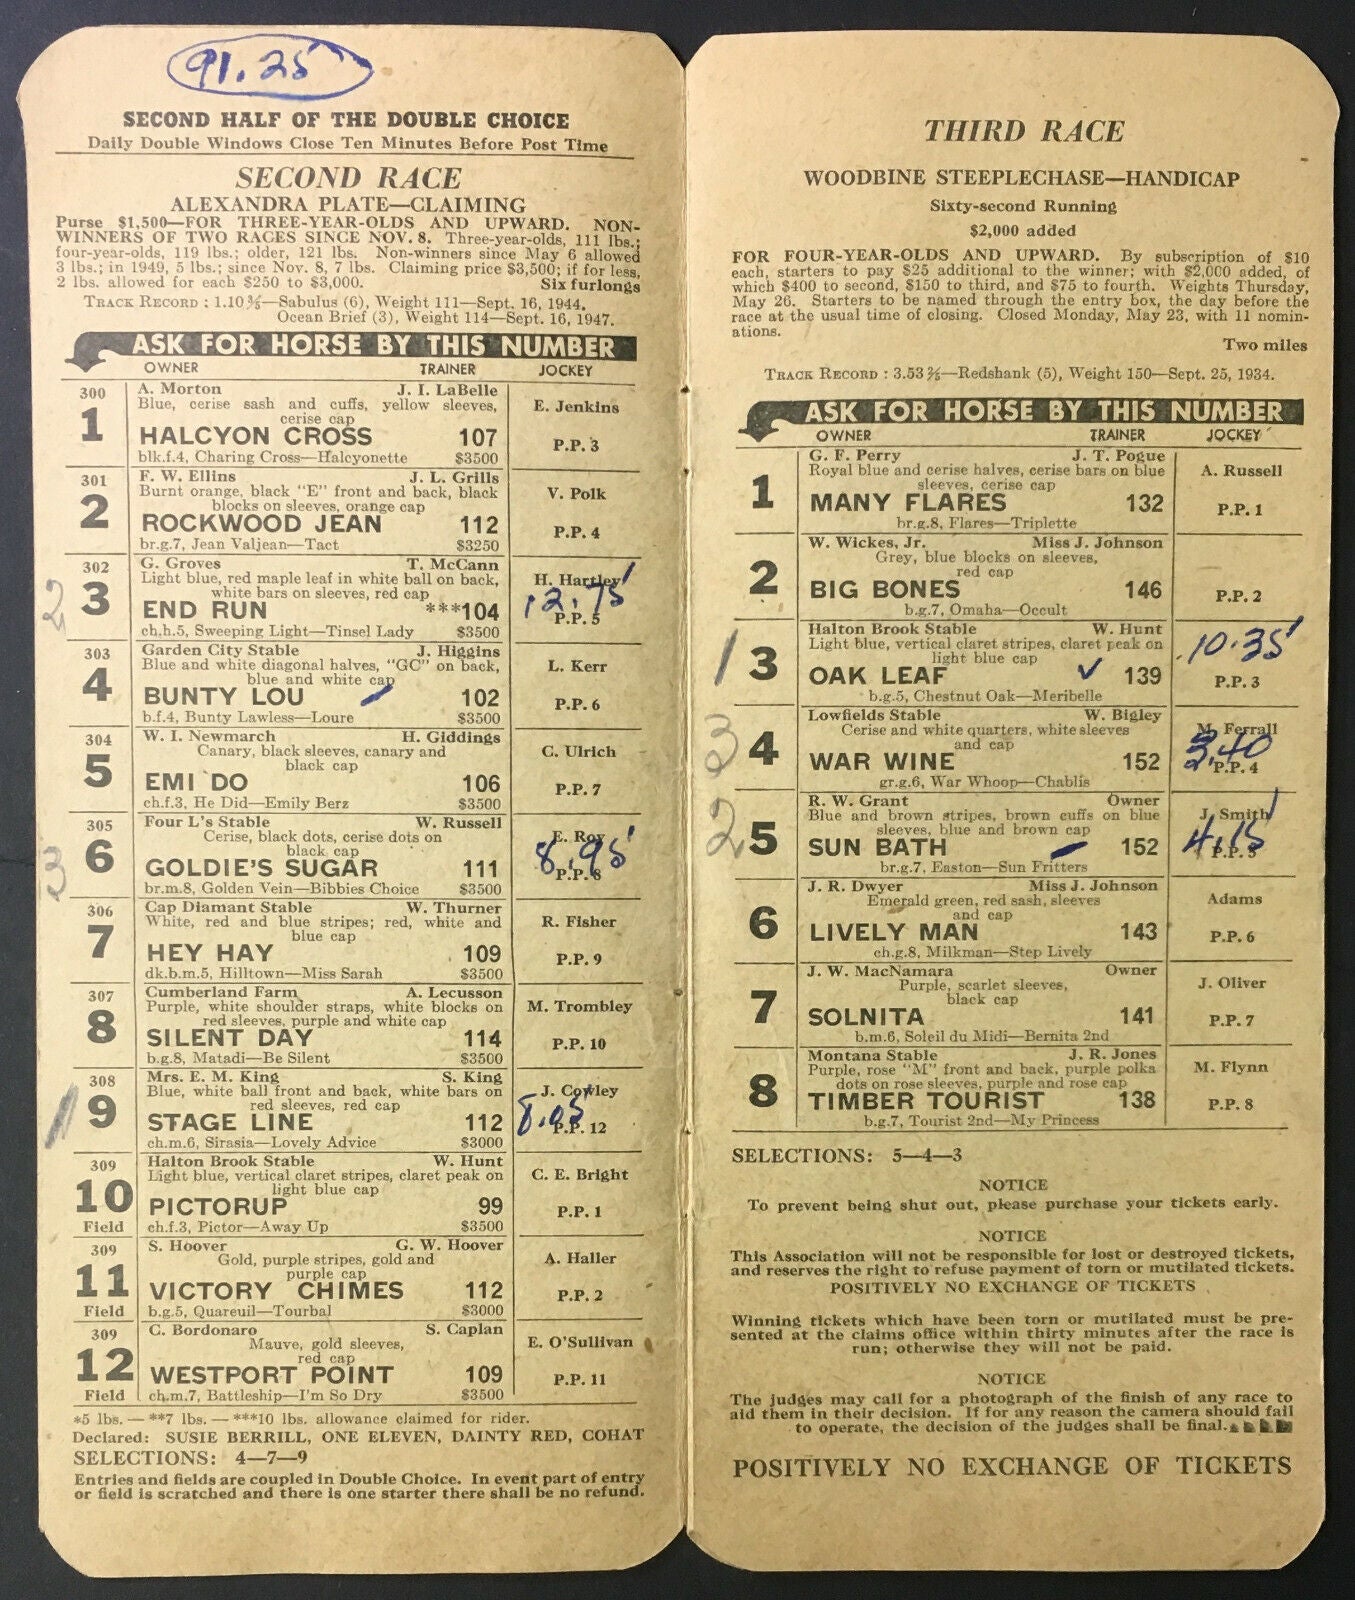 91.25
SECOND HALF OF THE DOUBLE CHOICE
Daily Double Windows Close Ten Minutes Before Post Time
SECOND RACE
ALEXANDRA PLATE—CLAIMING
Purse $1,500—FOR THREE-YEAR-OLDS AND UPWARD. NON-
WINNERS OF TWO RACES SINCE NOV. 8. Three-year-olds, 111 lbs.;
four-year-olds, 119 lbs.; older, 121 lbs. Non-winners since May 6 allowed
3 lbs.; in 1949, 5 lbs.; since Nov. 8, 7 lbs. Claiming price $3,500; if for less,
2 lbs. allowed for each $250 to $3,000. Six furlongs
TRACK RECORD : 1.10 3/5—Sabulus (6), Weight 111—Sept. 16, 1944.
Ocean Brief (3), Weight 114—Sept. 16, 1947.
ASK FOR HORSE BY THIS NUMBER
OWNER TRAINER JOCKEY
300 A. Morton J. I. LaBelle
Blue, cerise sash and cuffs, yellow sleeves, E. Jenkins
cerise cap
1 HALCYON CROSS 107 P.P. 3
blk.f.4, Charing Cross—Halcyonette $3500
301 F. W. Ellins J. L. Grills
Burnt orange, black "E" front and back, black V. Polk
blocks on sleeves, orange cap
2 ROCKWOOD JEAN 112 P.P. 4
br.g.7, Jean Valjean—Tact $3250
302 G. Groves T. McCann
Light blue, red maple leaf in white ball on back, H. Hartley
white bars on sleeves, red cap 12.75
2 3 END RUN ***104 P.P. 5
ch.h.5, Sweeping Light—Tinsel Lady $3500
303 Garden City Stable J. Higgins
Blue and white diagonal halves, "GC" on back, L. Kerr
blue and white cap
4 BUNTY LOU 102 P.P. 6
b.f.4, Bunty Lawless—Loure $3500
304 W. I. Newmarch H. Giddings
Canary, black sleeves, canary and C. Ulrich
black cap
5 EMI DO 106 P.P. 7
ch.f.3, He Did—Emily Berz $3500
305 Four L's Stable W. Russell
Cerise, black dots, cerise dots on E. Roy
black cap 8.95
3 6 GOLDIE'S SUGAR 111 P.P. 8
br.m.8, Golden Vein—Bibbies Choice $3500
306 Cap Diamant Stable W. Thurner
White, red and blue stripes; red, white and R. Fisher
blue cap
7 HEY HAY 109 P.P. 9
dk.b.m.5, Hilltown—Miss Sarah $3500
307 Cumberland Farm A. Lecusson
Purple, white shoulder straps, white blocks on M. Trombley
red sleeves, purple and white cap
8 SILENT DAY 114 P.P. 10
b.g.8, Matadi—Be Silent $3500
308 Mrs. E. M. King S. King
Blue, white ball front and back, white bars on J. Cowley
red sleeves, red cap 8.05
1 9 STAGE LINE 112 P.P. 12
ch.m.6, Sirasia—Lovely Advice $3000
309 Halton Brook Stable W. Hunt
Light blue, vertical claret stripes, claret peak on C. E. Bright
light blue cap
10 PICTORUP 99 P.P. 1
Field ch.f.3, Pictor—Away Up $3500
309 S. Hoover G. W. Hoover
Gold, purple stripes, gold and A. Haller
purple cap
11 VICTORY CHIMES 112 P.P. 2
Field b.g.5, Quareuil—Tourbal $3000
309 C. Bordonaro S. Caplan
Mauve, gold sleeves, E. O'Sullivan
red cap
12 WESTPORT POINT 109 P.P. 11
Field ch.m.7, Battleship—I'm So Dry $3500
*5 lbs. — **7 lbs. — ***10 lbs. allowance claimed for rider.
Declared: SUSIE BERRILL, ONE ELEVEN, DAINTY RED, COHAT
SELECTIONS: 4—7—9
Entries and fields are coupled in Double Choice. In event part of entry
or field is scratched and there is one starter there shall be no refund.
THIRD RACE
WOODBINE STEEPLECHASE—HANDICAP
Sixty-second Running
$2,000 added
FOR FOUR-YEAR-OLDS AND UPWARD. By subscription of $10
each, starters to pay $25 additional to the winner; with $2,000 added, of
which $400 to second, $150 to third, and $75 to fourth. Weights Thursday,
May 26. Starters to be named through the entry box, the day before the
race at the usual time of closing. Closed Monday, May 23, with 11 nomin-
ations.
Two miles
TRACK RECORD : 3.53 2/5—Redshank (5), Weight 150—Sept. 25, 1934.
ASK FOR HORSE BY THIS NUMBER
OWNER TRAINER JOCKEY
G. F. Perry J. T. Pogue
Royal blue and cerise halves, cerise bars on blue A. Russell
sleeves, cerise cap
1 MANY FLARES 132 P.P. 1
br.g.8, Flares—Triplette
W. Wickes, Jr. Miss J. Johnson
Grey, blue blocks on sleeves,
red cap
2 BIG BONES 146 P.P. 2
b.g.7, Omaha—Occult
Halton Brook Stable W. Hunt
Light blue, vertical claret stripes, claret peak on 10.35
light blue cap
1 3 OAK LEAF ✓ 139 P.P. 3
b.g.5, Chestnut Oak—Meribelle
Lowfields Stable W. Bigley
Cerise and white quarters, white sleeves M. Ferrall
and cap 3.40
3 4 WAR WINE 152 P.P. 4
gr.g.6, War Whoop—Chablis
R. W. Grant Owner
Blue and brown stripes, brown cuffs on blue J. Smith
sleeves, blue and brown cap 4.15
2 5 SUN BATH 152 P.P. 5
br.g.7, Easton—Sun Fritters
J. R. Dwyer Miss J. Johnson
Emerald green, red sash, sleeves Adams
and cap
6 LIVELY MAN 143 P.P. 6
ch.g.8, Milkman—Step Lively
J. W. MacNamara Owner
Purple, scarlet sleeves, J. Oliver
black cap
7 SOLNITA 141 P.P. 7
b.m.6, Soleil du Midi—Bernita 2nd
Montana Stable J. R. Jones
Purple, rose "M" front and back, purple polka M. Flynn
dots on rose sleeves, purple and rose cap
8 TIMBER TOURIST 138 P.P. 8
b.g.7, Tourist 2nd—My Princess
SELECTIONS: 5—4—3
NOTICE
To prevent being shut out, please purchase your tickets early.
NOTICE
This Association will not be responsible for lost or destroyed tickets,
and reserves the right to refuse payment of torn or mutilated tickets.
POSITIVELY NO EXCHANGE OF TICKETS
Winning tickets which have been torn or mutilated must be pre-
sented at the claims office within thirty minutes after the race is
run; otherwise they will not be paid.
NOTICE
The judges may call for a photograph of the finish of any race to
aid them in their decision. If for any reason the camera should fail
to operate, the decision of the judges shall be final.
POSITIVELY NO EXCHANGE OF TICKETS